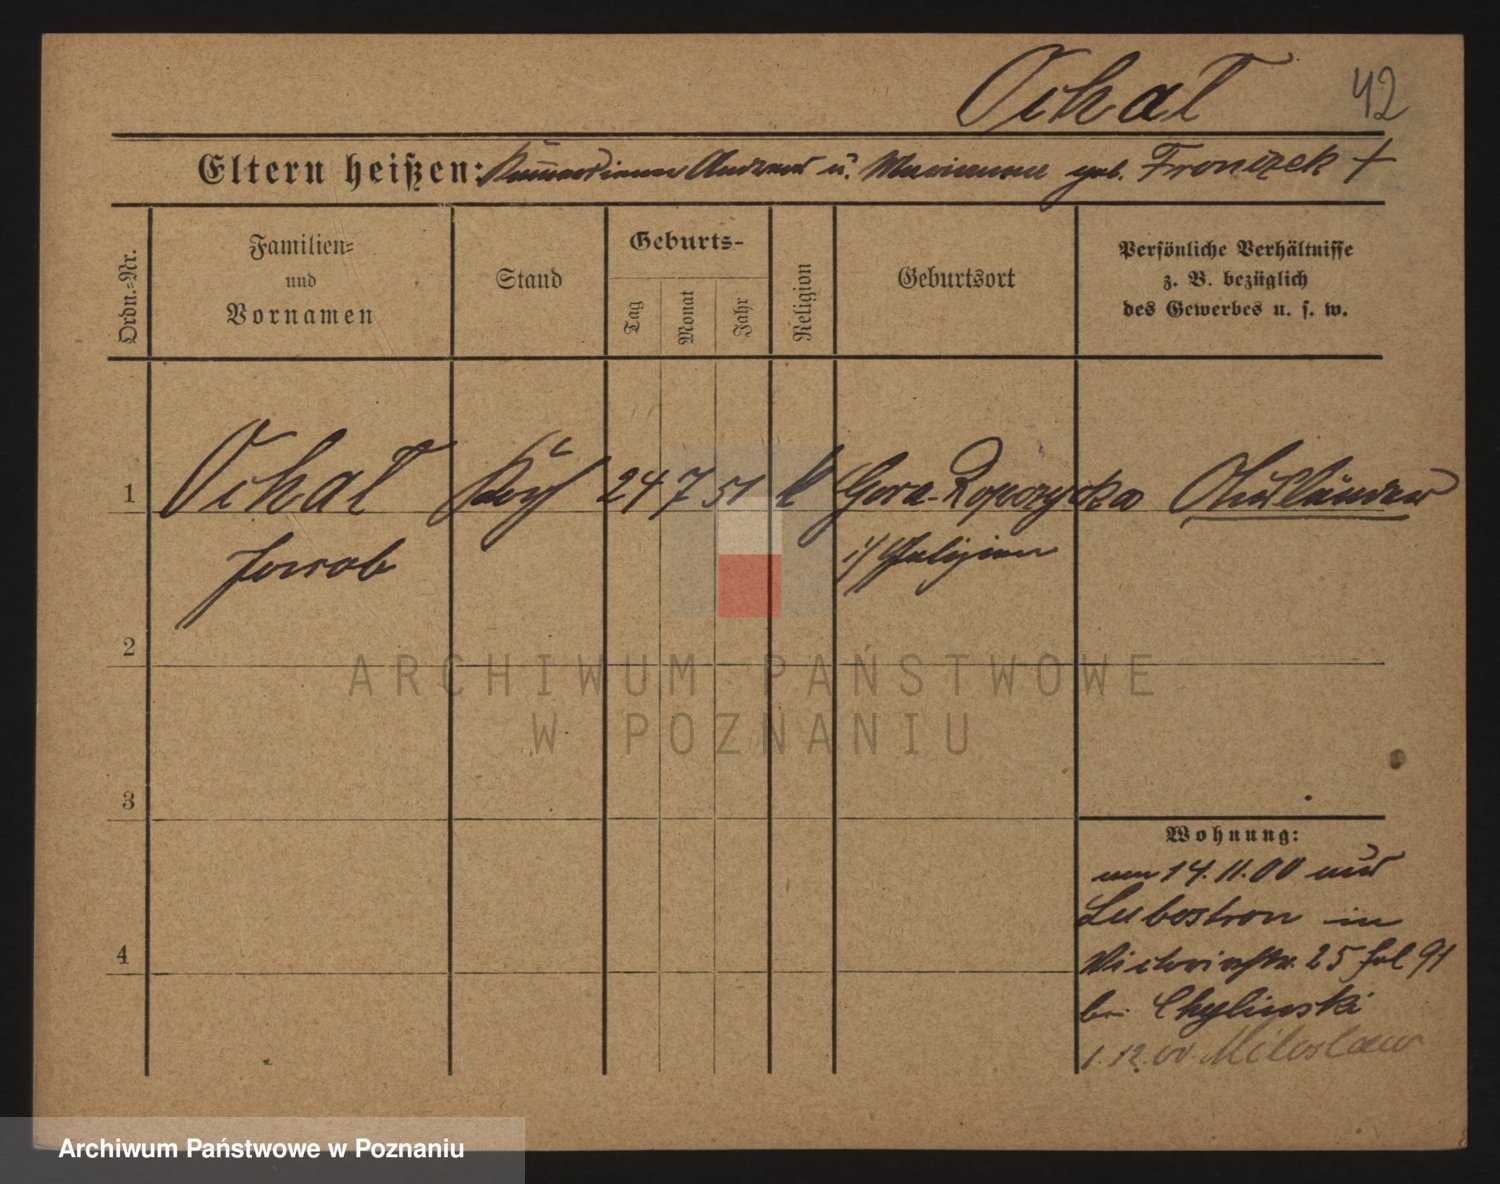 Ochal 42
Eltern heißen: Andreas u. Marianna geb. Fronczek +
Ordn.-Nr.
Familien-
und
Vornamen
Stand
Geburts-
Tag
Monat
Jahr
Religion
Geburtsort
Persönliche Verhältnisse
z. B. bezüglich
des Gewerbes u. s. w.
1 Ochal 24 7 51 k Gora-Ropczycka Ausländer
Jacob i/ Galizien
2
ARCHIWUM PAŃSTWOWE
W POZNANIU
3
Wohnung:
am 14.11.00 aus
Lubostron in
Victoriastr. 25 91
4
bei Chylinski
1.12.00. Miloslaw
Archiwum Państwowe w Poznaniu